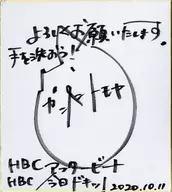 よろしくお願いいたします。
手を洗おう!
ガンバ トモヤ
HBC アフタービート
HBC 今日ドキッ!
2020.10.11